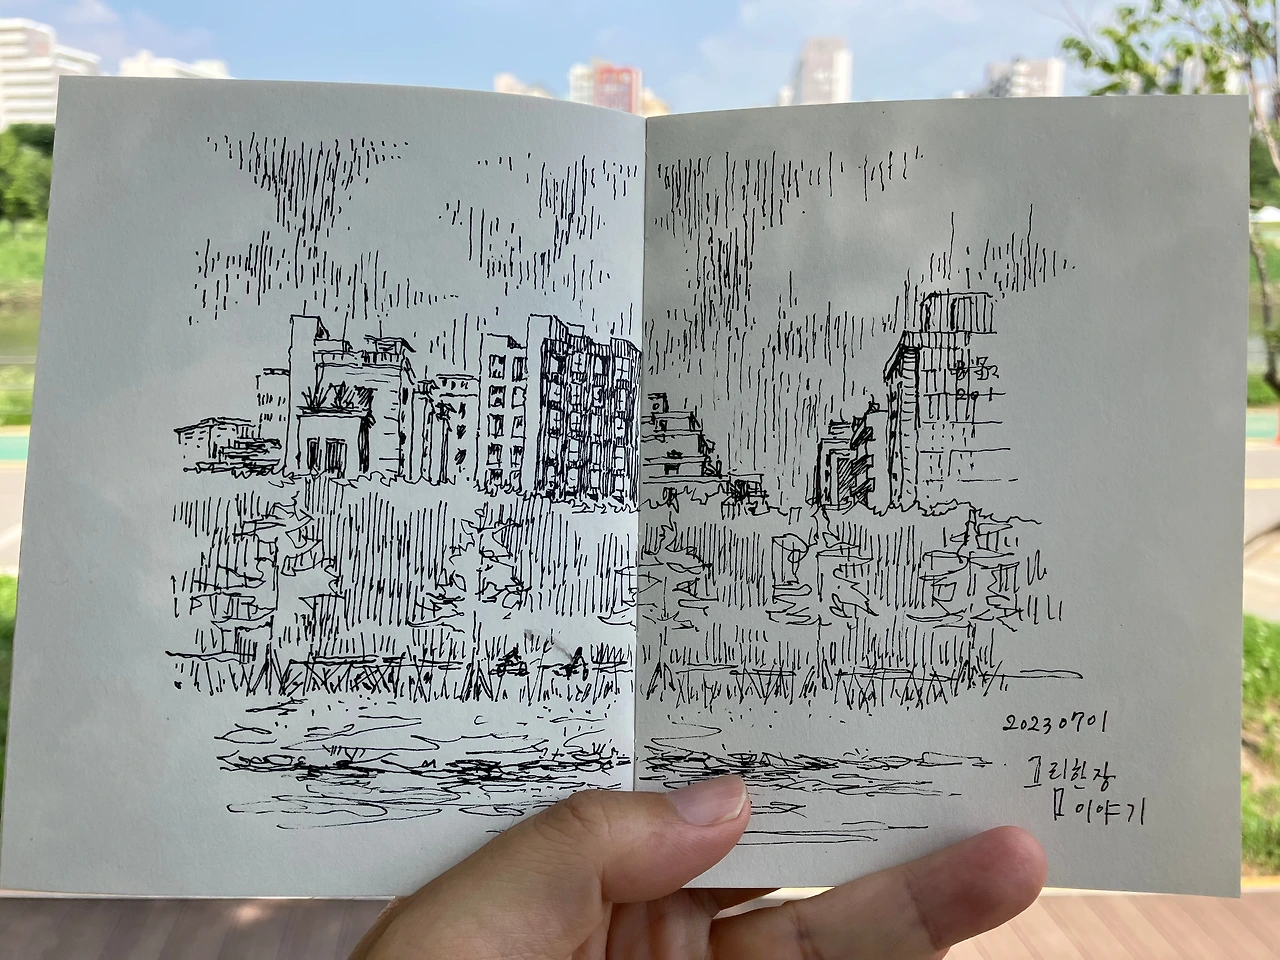 20230701
그림한장
이야기